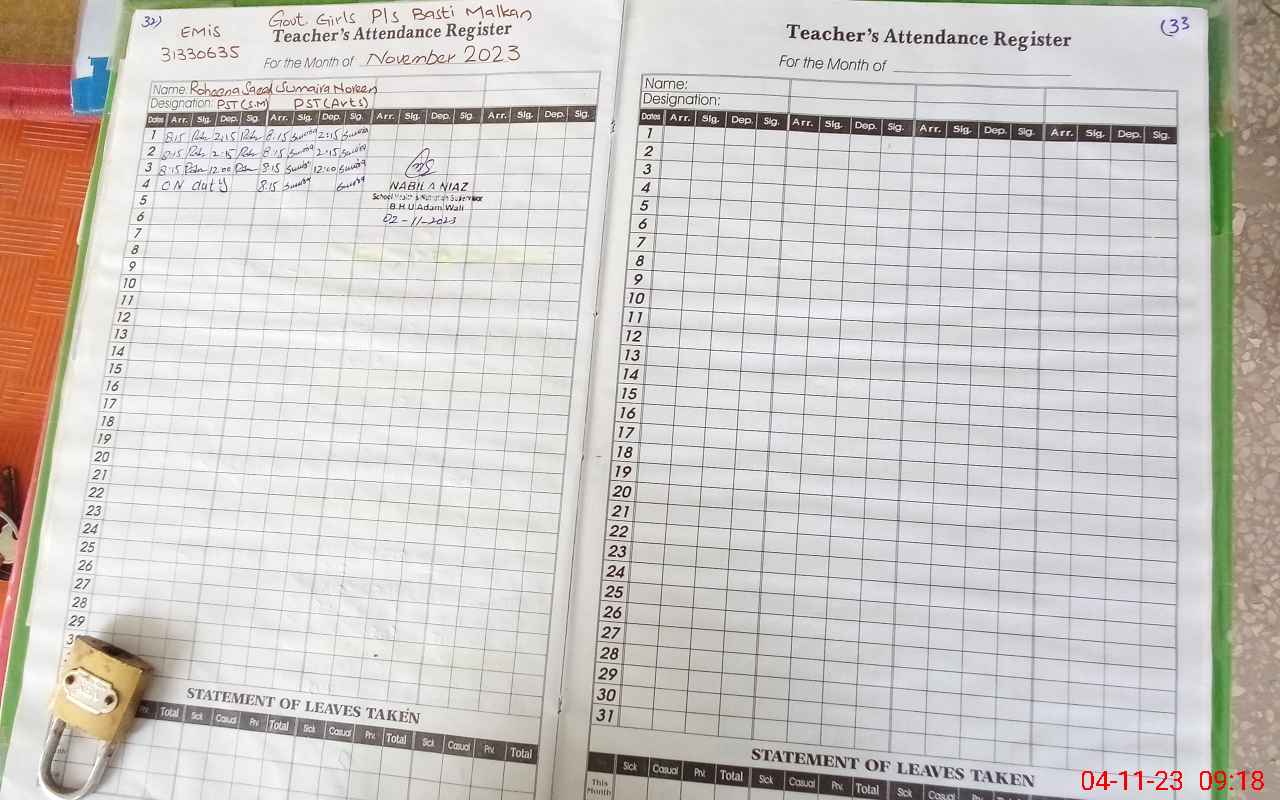 32)
Govt. Girls P/s Basti Malkan
EMIS
31330635
Teacher's Attendance Register
For the Month of November 2023
Name: Roheena Saeed Sumaira Noreen
Designation: PST(S.M) PST(Arts)
Dates Arr. Sig. Dep. Sig. Arr. Sig. Dep. Sig. Arr. Sig. Dep. Sig. Arr. Sig. Dep. Sig.
1 8:15 2:15 8:15 2:15
2 8:15 2:15 8:15 2:15
3 8:15 12:00 8:15 12:00
4 ON duty 8:15
NABILA NIAZ
School Health & Nutrition Supervisor
B.H.U Adam Wali
02-11-2023
5
6
7
8
9
10
11
12
13
14
15
16
17
18
19
20
21
22
23
24
25
26
27
28
29
STATEMENT OF LEAVES TAKEN
Prv. Total Sick Casual Prv. Total Sick Casual Prv. Total Sick Casual Prv. Total
(33
Teacher's Attendance Register
For the Month of
Name:
Designation:
Dates Arr. Sig. Dep. Sig. Arr. Sig. Dep. Sig. Arr. Sig. Dep. Sig. Arr. Sig. Dep. Sig.
1
2
3
4
5
6
7
8
9
10
11
12
13
14
15
16
17
18
19
20
21
22
23
24
25
26
27
28
29
30
31
STATEMENT OF LEAVES TAKEN
Sick Casual Prv. Total Sick Casual Prv. Total Sick Casual
This
Month
04-11-23 09:18